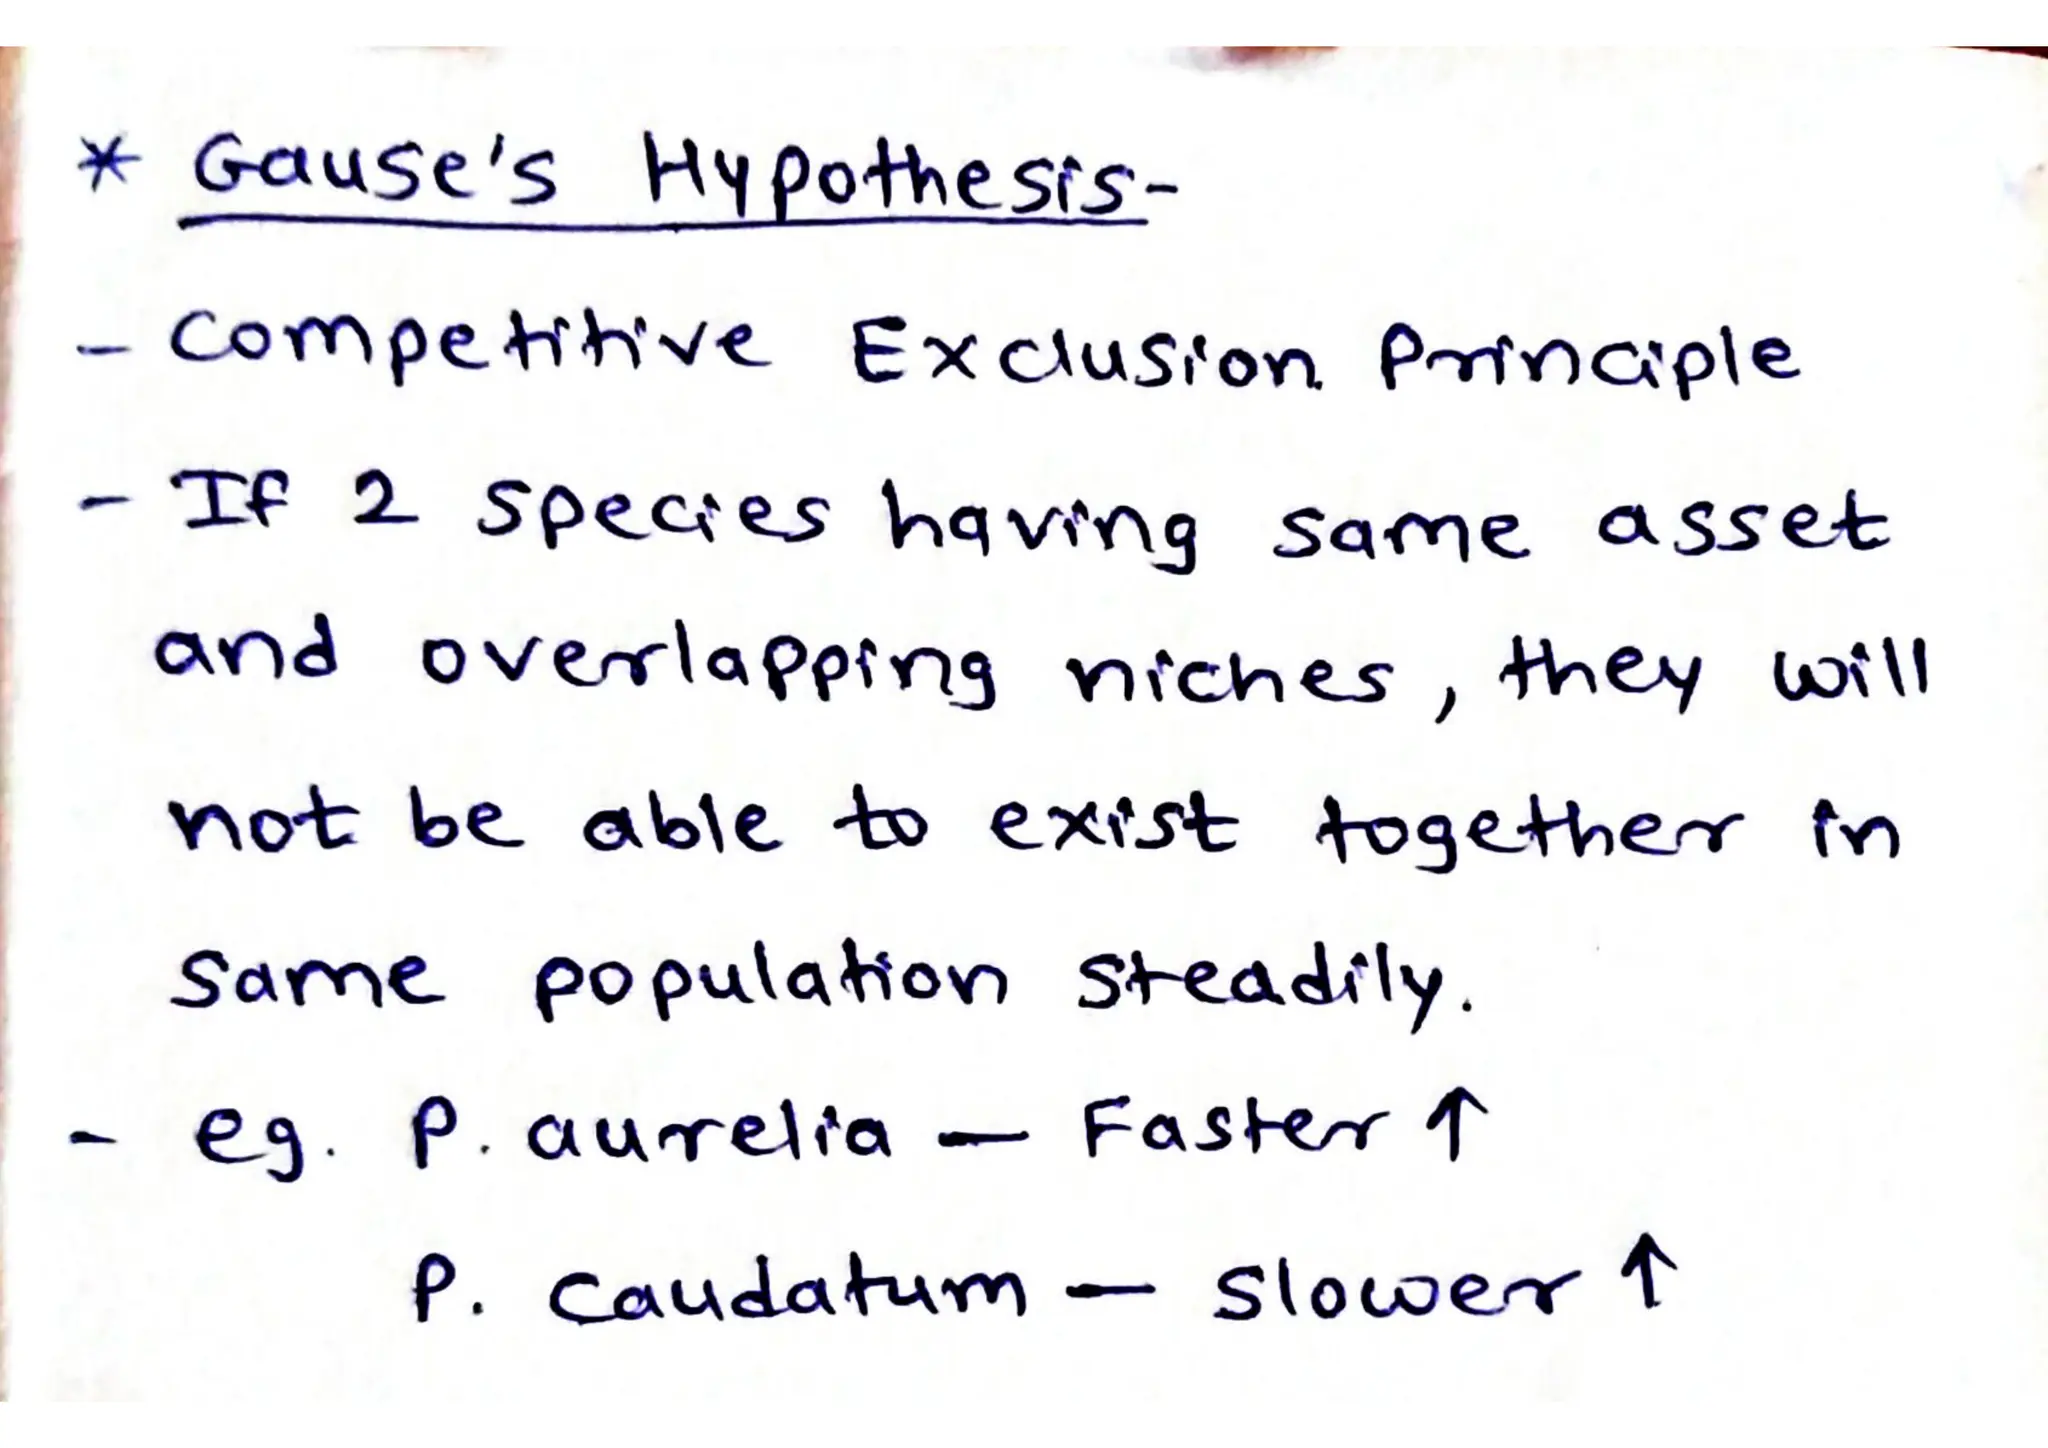 * Gause's Hypothesis-
- Competitive Exclusion Principle
- If 2 species having same asset
and overlapping niches, they will
not be able to exist together in
same population steadily.
- eg. P. aurelia - Faster ↑
P. Caudatum - Slower ↑